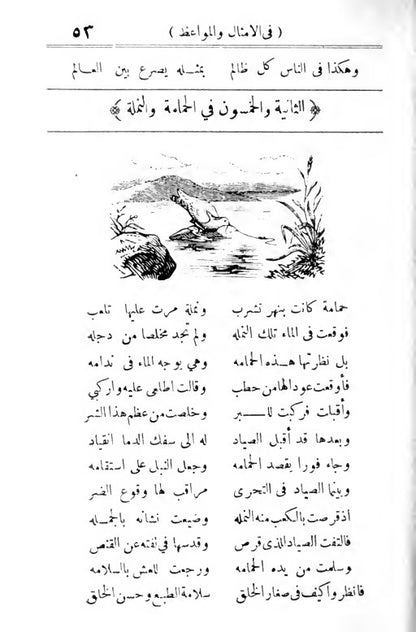 ( فى الامثال والمواعظ ) ٥٣
وهكذا فى الناس كل ظالم بمثله يصرع بين العالم
﴿ الثانية والخمسون في الحمامة والنملة ﴾
حمامة كانت بنهر تشرب ونملة مرت عليها تلعب
فوقعت فى الماء تلك النمله ولم تجد مخلصا من دجله
بل نظرتها هذه الحمامه وهى بوجه الماء فى ندامه
فأوقعت عودا لها من حطب وقالت اطلعى عليه واركبى
وأقبلت فركبت للبر وخلصت من عظم هذا الشر
وبعدها قد أقبل الصياد له الى سفك الدما انقياد
وجاء فورا يقصد الحمامه وجعل النبل على استقامه
وبينما الصياد فى التحرى مراقب لها وقوع الضر
اذ قرصت بالكعب منه النمله وضيعت نشانه بالجمله
فالتفت الصياد للذى قرص وقدسها فى نفته عن القنص
وسلمت من يده الحمامه ورجعت للعش بالسلامه
فانظروا كيف فى صغار الخلق سلامة الطبع وحسن الخلق